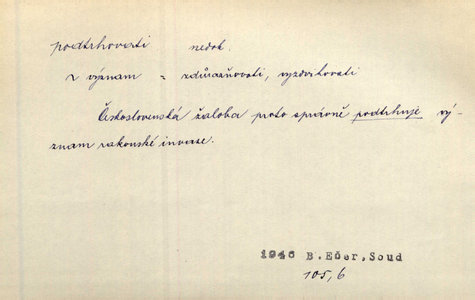 podtrhovati nedok.
z význam = zdůrazňovati, vyzdvihovati
Československá žaloba proto správně podtrhuje vý-
znam rakouské invase.
1946 B. Ečer, Soud
105, 6